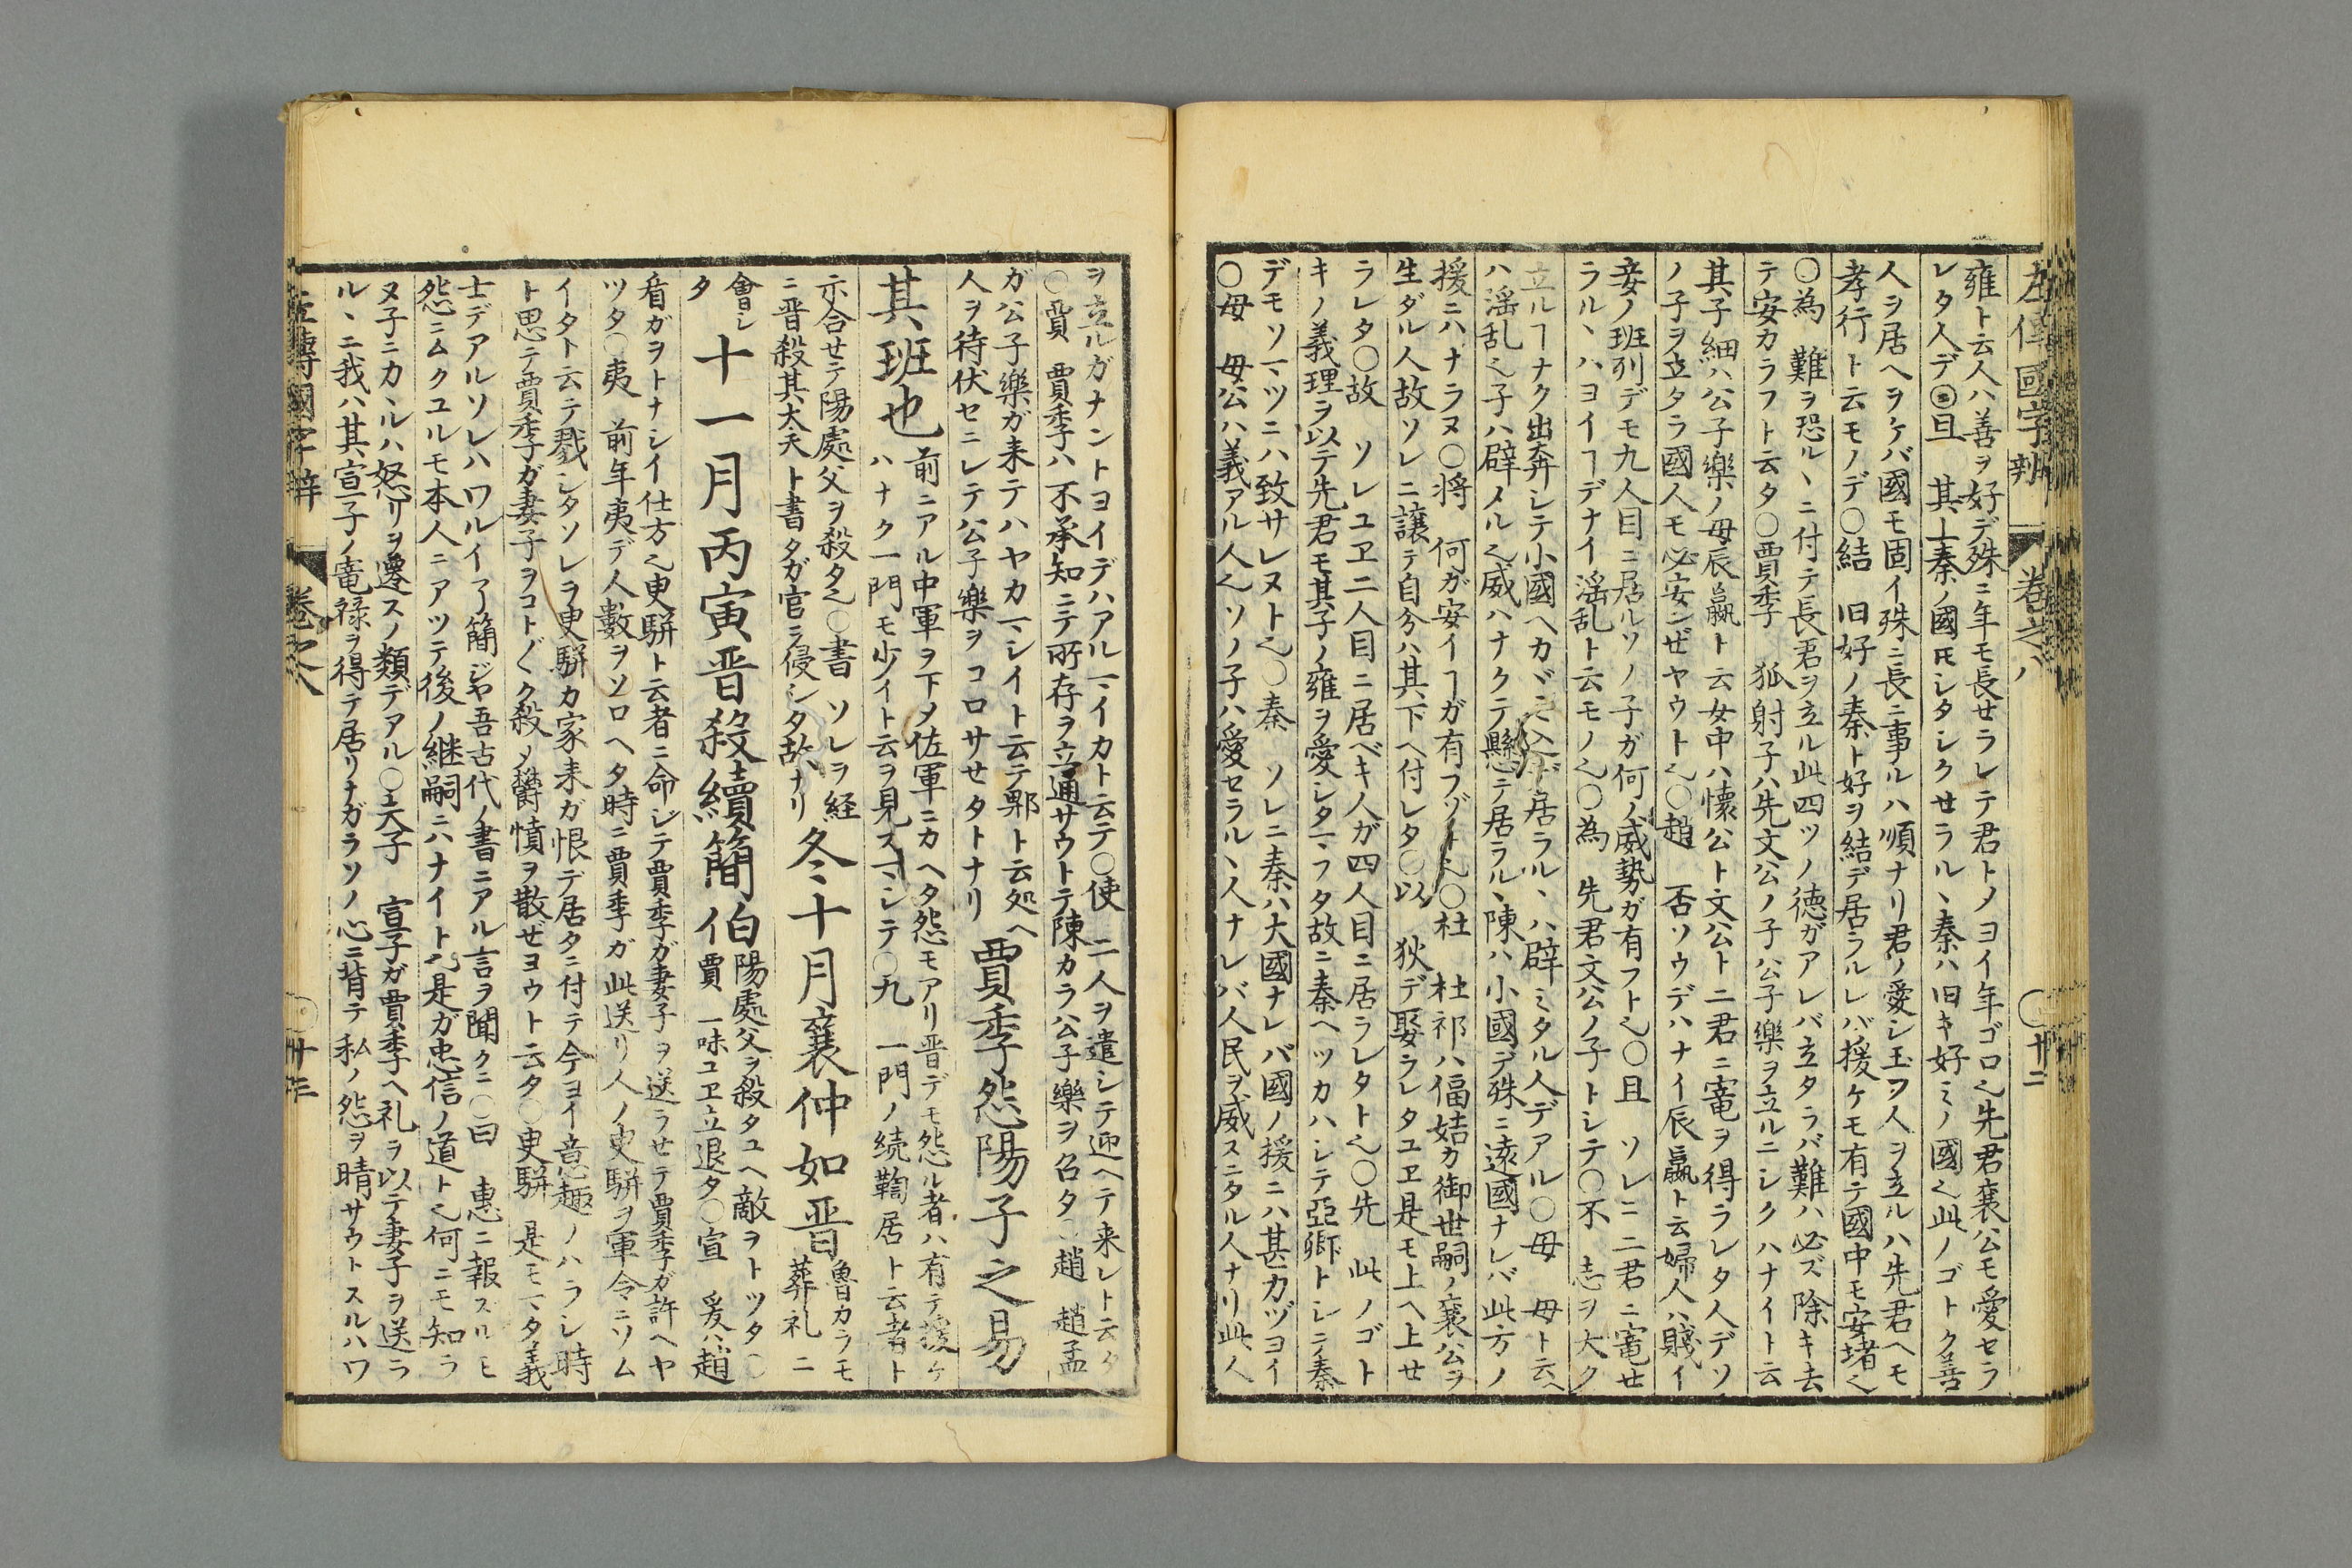 左傳國字辨　巻之八　〇十二
雍ト云人ハ善ヲ好デ殊ニ年モ長セラレテ君トメヨイ年ゴロ也先君襄公モ愛セラ
レタ人デ〇且　其上秦ノ國モシタシクせラルヽ秦ハ旧キ好ミノ國也此ノゴトク善
人ヲ居ヘヲケバ國モ固イ殊ニ長ニ事ルハ順ナリ君ノ愛シ玉フ人ヲ立ルハ先君ヘモ
孝行ト云モノデ〇結　旧好ノ秦ト好ヲ結デ居ラルレバ援ケモ有テ國中モ安堵也
〇為　難ヲ恐ルヽニ付テ長君ヲ立ル此四ツノ徳ガアレバ立タラバ難ハ必ズ除キ去
テ安カラフト云タ〇賈季　狐射子ハ先文公ノ子公子樂ヲ立ルニシクハナイト云
其子細ハ公子樂ノ母辰嬴ト云女中ハ懷公ト文公ト二君ニ寵ヲ得ラレタ人デソ
ノ子ヲ立タラ國人モ必安ンぜヤウト也〇趙　否ソウデハナイ辰嬴ト云婦人ハ賤イ
妾ノ班列デモ九人目ニ居ルソノ子ガ何ノ威勢ガ有フト也〇且　ソレニ二君ニ寵せ
ラルヽハヨイヿデナイ淫乱ト云モノ也〇為　先君文公ノ子トシテ〇不　志ヲ大ク
立ルヿナク出奔シテ小國ヘカヾミ居ラルヽハ辟ミタル人デアル〇母　母ト云ヘ
ハ淫乱也子ハ辟メル也威ハナクテ懸テ居ラルヽ陳ハ小國デ殊ニ遠國ナレバ此方ノ
援ニハナラヌ〇將　何ガ安イヿガ有フゾト也〇杜　杜祁ハ偪姞カ御世嗣ノ襄公ヲ
生ダル人故ソレニ譲テ自分ハ其下ヘ付レタ〇以　狄デ娶ラレタユヱ是モ上ヘ上せ
ラレタ〇故　ソレユヱ二人目ニ居ベキ人ガ四人目ニ居ラレタト也〇先　此ノゴト
キノ義理ヲ以テ先君モ其子ノ雍ヲ愛シタマフタ故ニ秦ヘツカハシテ亞卿トシテ秦
デモソマツニハ致サレヌト也〇秦　ソレニ秦ハ大國ナレバ國ノ援ニハ甚カヅヨイ
〇母　母公ハ義アル人也ソノ子ハ愛セラルヽ人ナレバ人民ヲ威スニタル人ナリ此人
ヲ立ルガナントヨイデハアルマイカト云テ〇使　二人ヲ遣シテ迎ヘテ来レト云タ
〇賈　賈季ハ不承知ニテ所存ヲ立通サウトテ陳カラ公子樂ヲ召タ〇趙　趙孟
ガ公子樂ガ来テハヤカマシイト云テ鄩ト云処ヘ
人ヲ待伏セニレテ公子樂ヲコロサせタトナリ　賈季怨陽子之易
其班也　前ニアル中軍ヲ下メ佐軍ニカヘタ怨モアリ晋デモ怨ル者ハ有テ援ケ
ハナク一門モ少イト云ヲ見スマシテ〇九　一門ノ続鞫居ト云者ト
示合せテ陽處父ヲ殺タ也〇書　ソレヲ経
ニ晋殺其太夫ト書タガ官ヲ侵シタ故ナリ　冬十月襄仲如晋　魯カラモ
葬礼ニ
會シ
タ　十一月丙寅晋殺續簡伯　陽處父ヲ殺タユヘ敵ヲトツタ〇
賈　一味ユヱ立退タ〇宣　爰ハ趙
盾ガヲトナシイ仕方也叟駢ト云者ニ命ジテ賈季ガ妻子ヲ送ラせテ賈季ガ許ヘヤ
ツタ〇夷　前年夷デ人數ヲソロヘタ時ニ賈季ガ此送リ人ノ叟駢ヲ軍令ニソム
イタト云テ戮シタソレヲ叟駢カ家来ガ恨デ居タニ付テ今ヨイ意趣ノハラシ時
ト思テ賈季ガ妻子ヲコト〲ク殺メ欝憤ヲ散ぜヨウト云タ〇叟駢　是モマタ義
士デアルソレハワルイ了簡ジヤ吾古代ノ書ニアル言ヲ聞クニ〇曰　惠ニ報ズルモ
怨ニムクユルモ本人ニアツテ後ノ継嗣ニハナイト也是ガ忠信ノ道ト也何ニモ知ラ
ヌ子ニカヽルハ怒リヲ遷スノ類デアル〇夫子　宣子ガ賈季ヘ礼ヲ以テ妻子ヲ送ラ
ルヽニ我ハ其宣子ノ寵禄ヲ得テ居リナガラソノ心ニ背テ私ノ怨ヲ晴サウトスルハワ
左傳國字辨　巻之八　〇十三